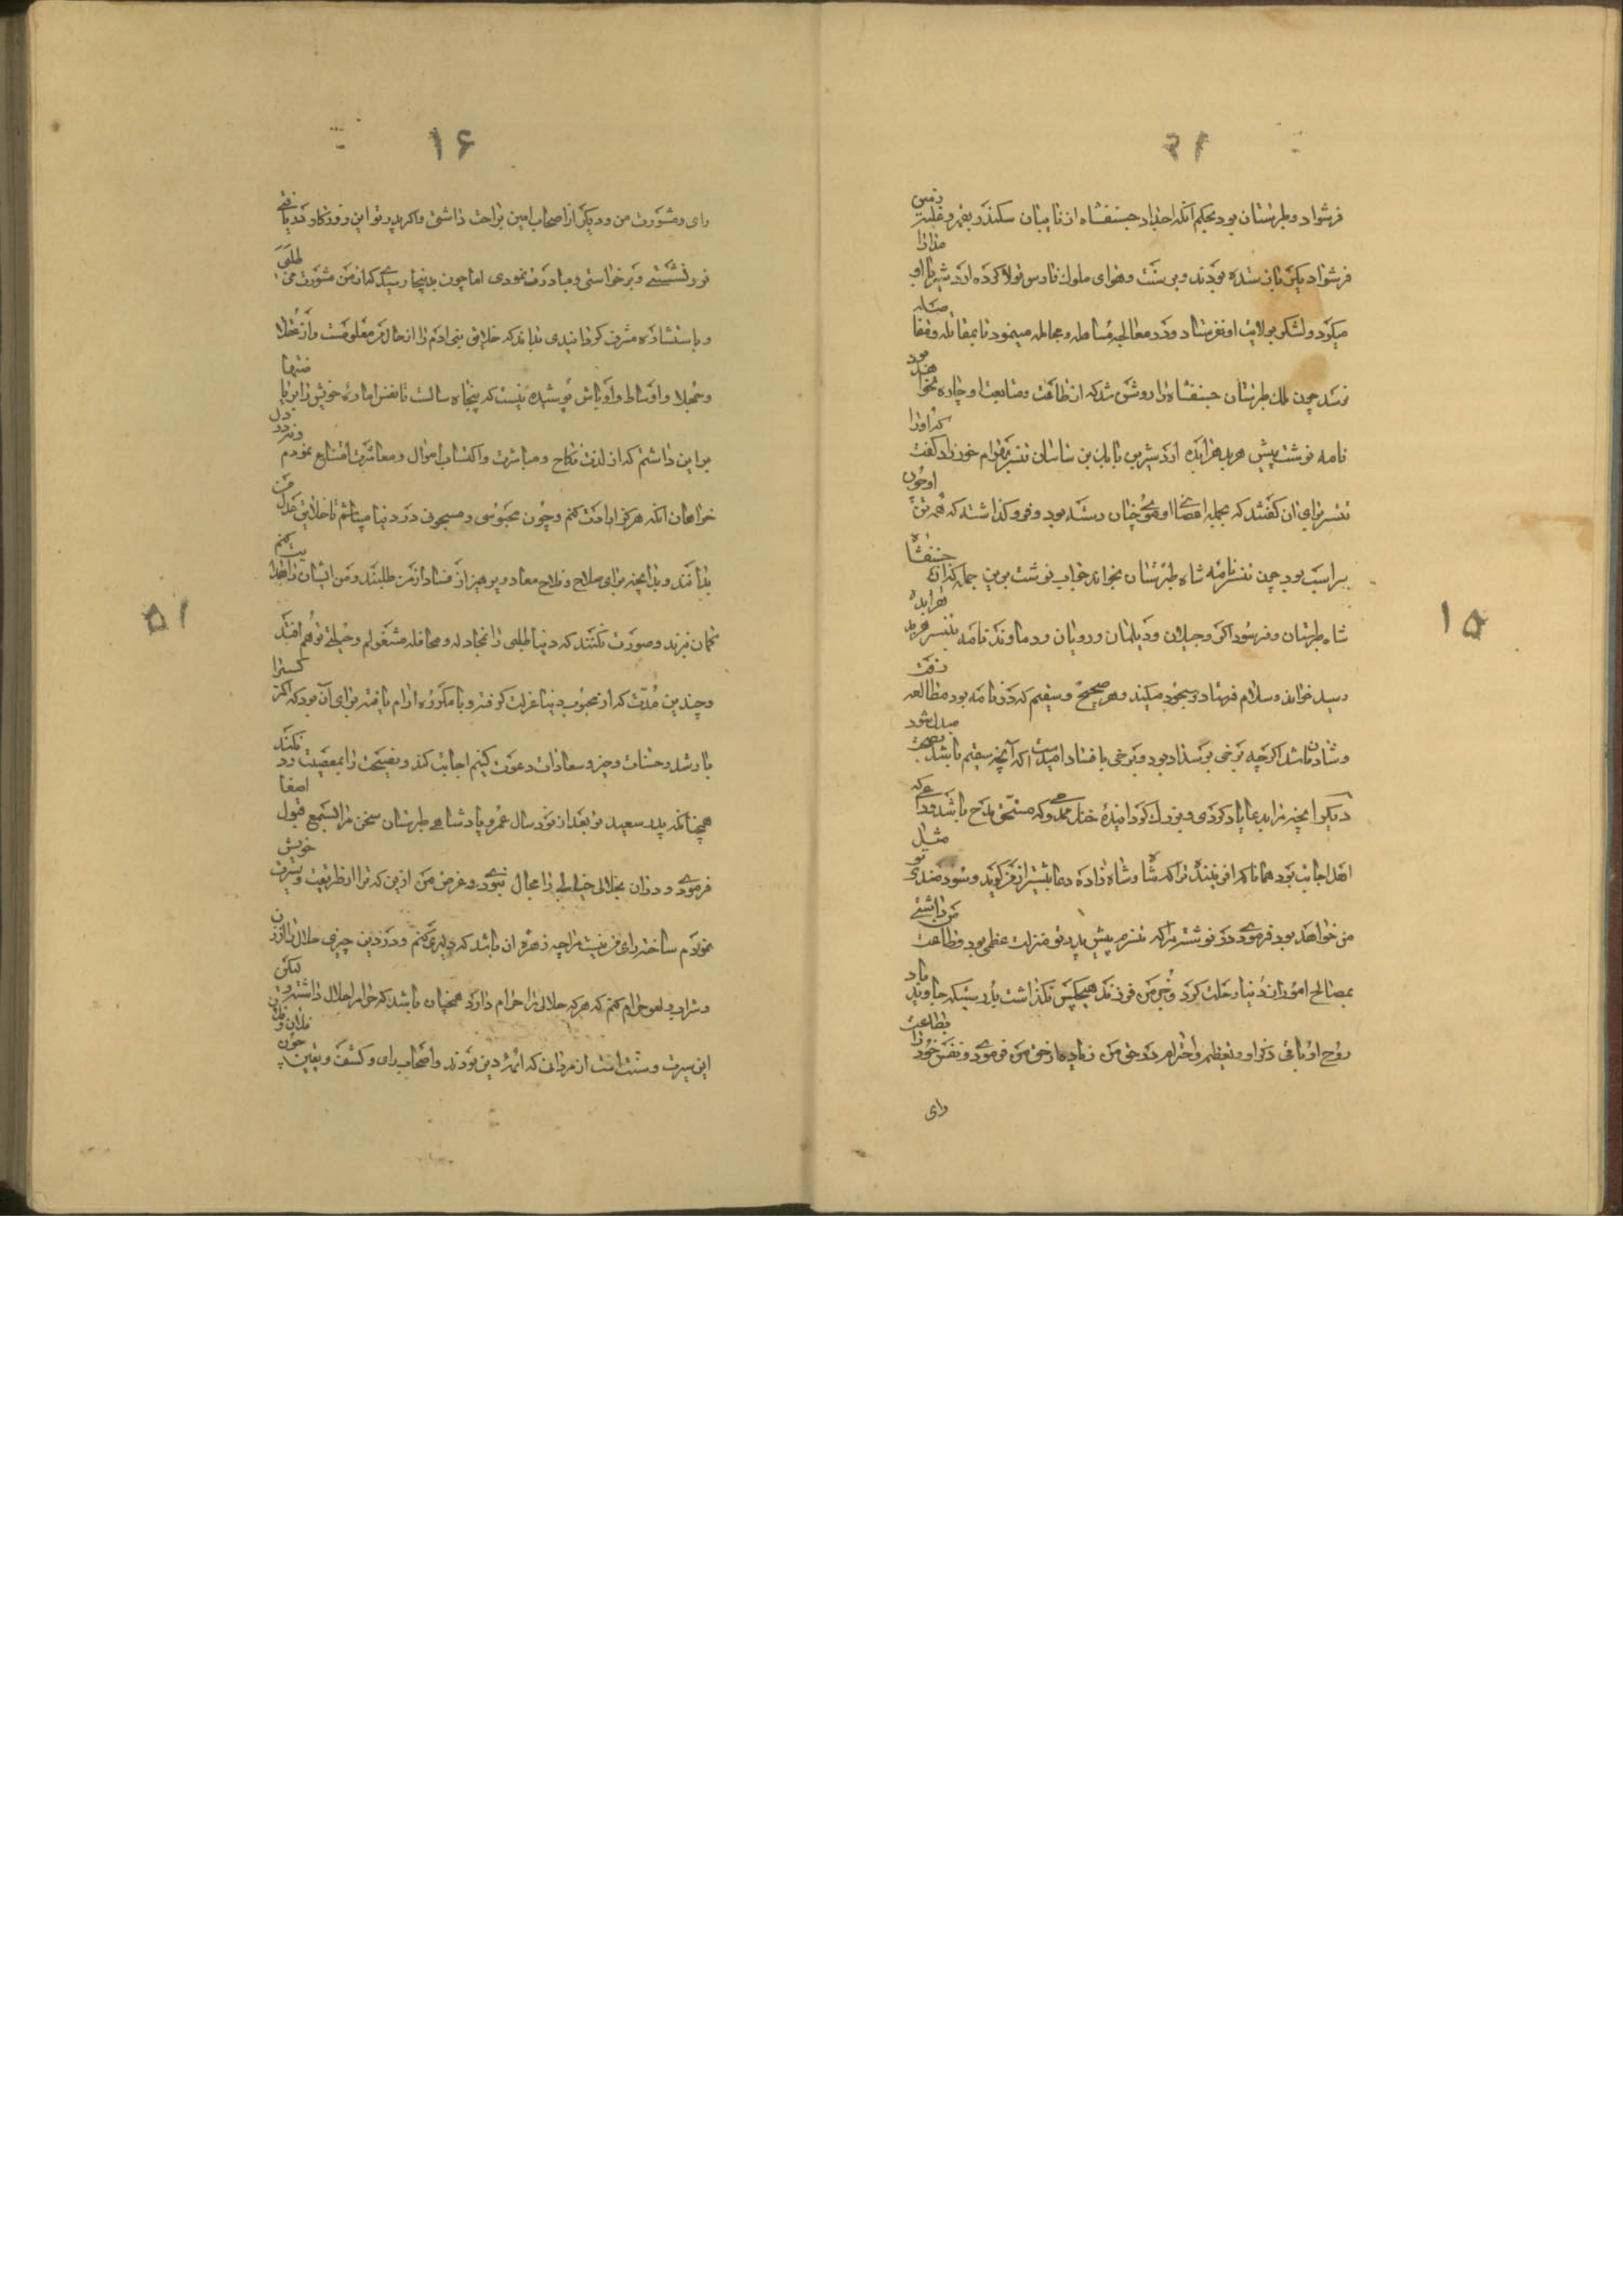 ۲۱
فرشواد و طبرستان بود بحکم آنکه اجداد جسنفشاه از نایبان سکندر بقهر و غلبه زمین
فرشواد یکن باز ستده بودند و بر سنت و هوای ملوک فارس تولا کرده اردشیر با او مدارا
میکرد و لشکر بولایت او نفرستاد و در معالجه مساهله و مجامله مینمود تا بمقاتله و مفاضله
نرسد چون ملک طبرستان جسنفشاه را روشن شد که از طاعت و متابعت او چاره نخواهد بود
نامه نوشت پیش هربد هرابده اردشیر بن بابک بن ساسان تنسر بهرام خورزاد گفت که او را
تنسر برای آن گفتند که بجمله اعضای او موی چنان رسته بود و فرو گذاشته که همه تن او چون
سر اسب بود چون تنسر نامه شاه طبرستان بخواند جواب نوشت برین جمله که از جسنفشاه
شاه طبرستان و فرشوادگر و جیلان و دیلمان و رویان و دماوند نامه پیش تنسر هربد هرابده
رسید خواند و سلام فرستاد و سجود میکند و هر صحیح و سقیم که در نامه بود مطالعه رفت
و شادمان شد اگرچه برخی بر سداد بود و برخی با فساد امید است که آنچه سقیم باشد بصحت مبدل شود
دیگر آنچه مرا بدعا یاد کردی و بزرگ گردانیده خنک ممدوحی که مستحق مدح باشد و داعی که
اهل اجابت بود همانا که آفریننده ترا که شاه و شاه زاده دعا بیشتر از من گوید و سود مندی تو مثل
من خواهد بود فرمودی در نوشته مرا که تنسرم پیش پدر تو منزلت عظیم بود و طاعت من داشتی
بمصالح امور از دنیا رحلت کرد و جز من فرزند هیچکس نگذاشت بدرستیکه جاوید باد
روح او و باقی ذکر او و تعظیم و احترام در حق من زیاده از حق من فرمودی و نفس خود را بطاعت
رای
۱۵
۱۶
رای و مشورت من و دیگر از اصحاب امین براحت داشتی و اگر پدر تو این روزگار دریافتی
تو درنشستی و برخواستی و مبادرت نمودی اما چون بدینجا رسید که از من مشورت می طلبی
و باستشاره مشرف گردانیدی بداند که خلایق بنی آدم را از حال من معلومست و از عقلا
و جهلا و اوساط و اوباش پوشیده نیست که پنجاه سالست تا نفس اماره خویش را بریاضتها
برین داشتم که از لذت نکاح و مباشرت و اکتساب اموال و معاشرت امتناع نمودم و نه در دل
خواهان آنکه هرگز ارادت کنم و چون محبوسی و مسجونی در دنیا میباشم تا خلایق عدل من
بدانند و بدآنچه برای صلاح و فلاح معاد و پرهیز از فساد از من طلبند و من ایشان را هدایت کنم
گمان نبرند و صورت نکنند که دنیا طلبی را بمجادله و محافله مشغولم و حیلتی توهم افتد
و چندین مدت که از محبوب دنیا عزلت گرفته و با مکروه آرام یافته برای آن بود که اگر کسی را
با رشد و حسنات و خیر و سعادات دعوت کنم اجابت کند و نصیحت را بمعصیت رد نکند
همچنانکه پدر سعید تو بعد از نود سال عمر و پادشاهی طبرستان سخن مرا بسمع قبول اصغا
فرمودی و در آن بخلالی خیالی را مجال نبودی و غرض من ازین که ترا از طریقت و سیرت خویش
نمودم ساخته رای من نیست مرا چه زهره آن باشد که دلیری کنم و در دین چیزی حلال را از زن
و شراب و لهو حرام کنم که هر که حلالی را حرام دارد همچنان باشد که حرام را حلال داشته لیکن
این سیرت و سنت است از مردانی که ائمه دین بودند و اصحاب رای و کشف و یقین چون فلان و فلان
۱۵